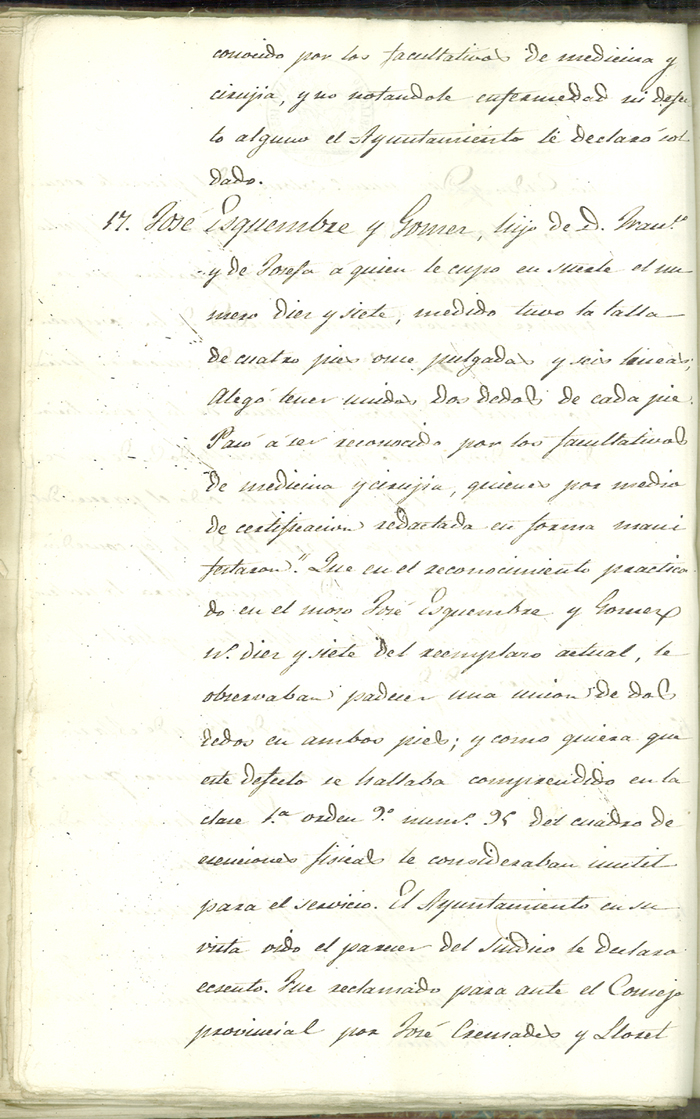 conocido por los facultativos de medicina y
cirujia, y no notandole enfermedad ni defec
to alguno el Ayuntamiento le declaró sol
dado.
17. José Esquembre y Gomez, hijo de D. Fran.co
y de Josefa á quien le cupo en suerte el nu
mero diez y siete, medido tuvo la talla
de cuatro pies once pulgadas y seis lineas;
Alegó tener unidos dos dedos de cada pie.
Pasó á ser reconocido por los facultativos
de medicina y cirujia, quienes por medio
de certificacion redactada en forma mani
festaron". Que en el reconocimiento practica
do en el moso José Esquembre y Gomez
n.º diez y siete del reemplazo actual, le
observaban padecer una union de dos
dedos en ambos pies; y como quiera que
este defecto se hallaba comprendido en la
clase 1.ª orden 9.º num.º 95 del cuadro de
esenciones fisicas le consideraban inutil
para el servicio. El Ayuntamiento en su
vista oido el parecer del Sindico le declaro
ecsento. Fue reclamado para ante el Consejo
provincial por José Cremades y Lloret